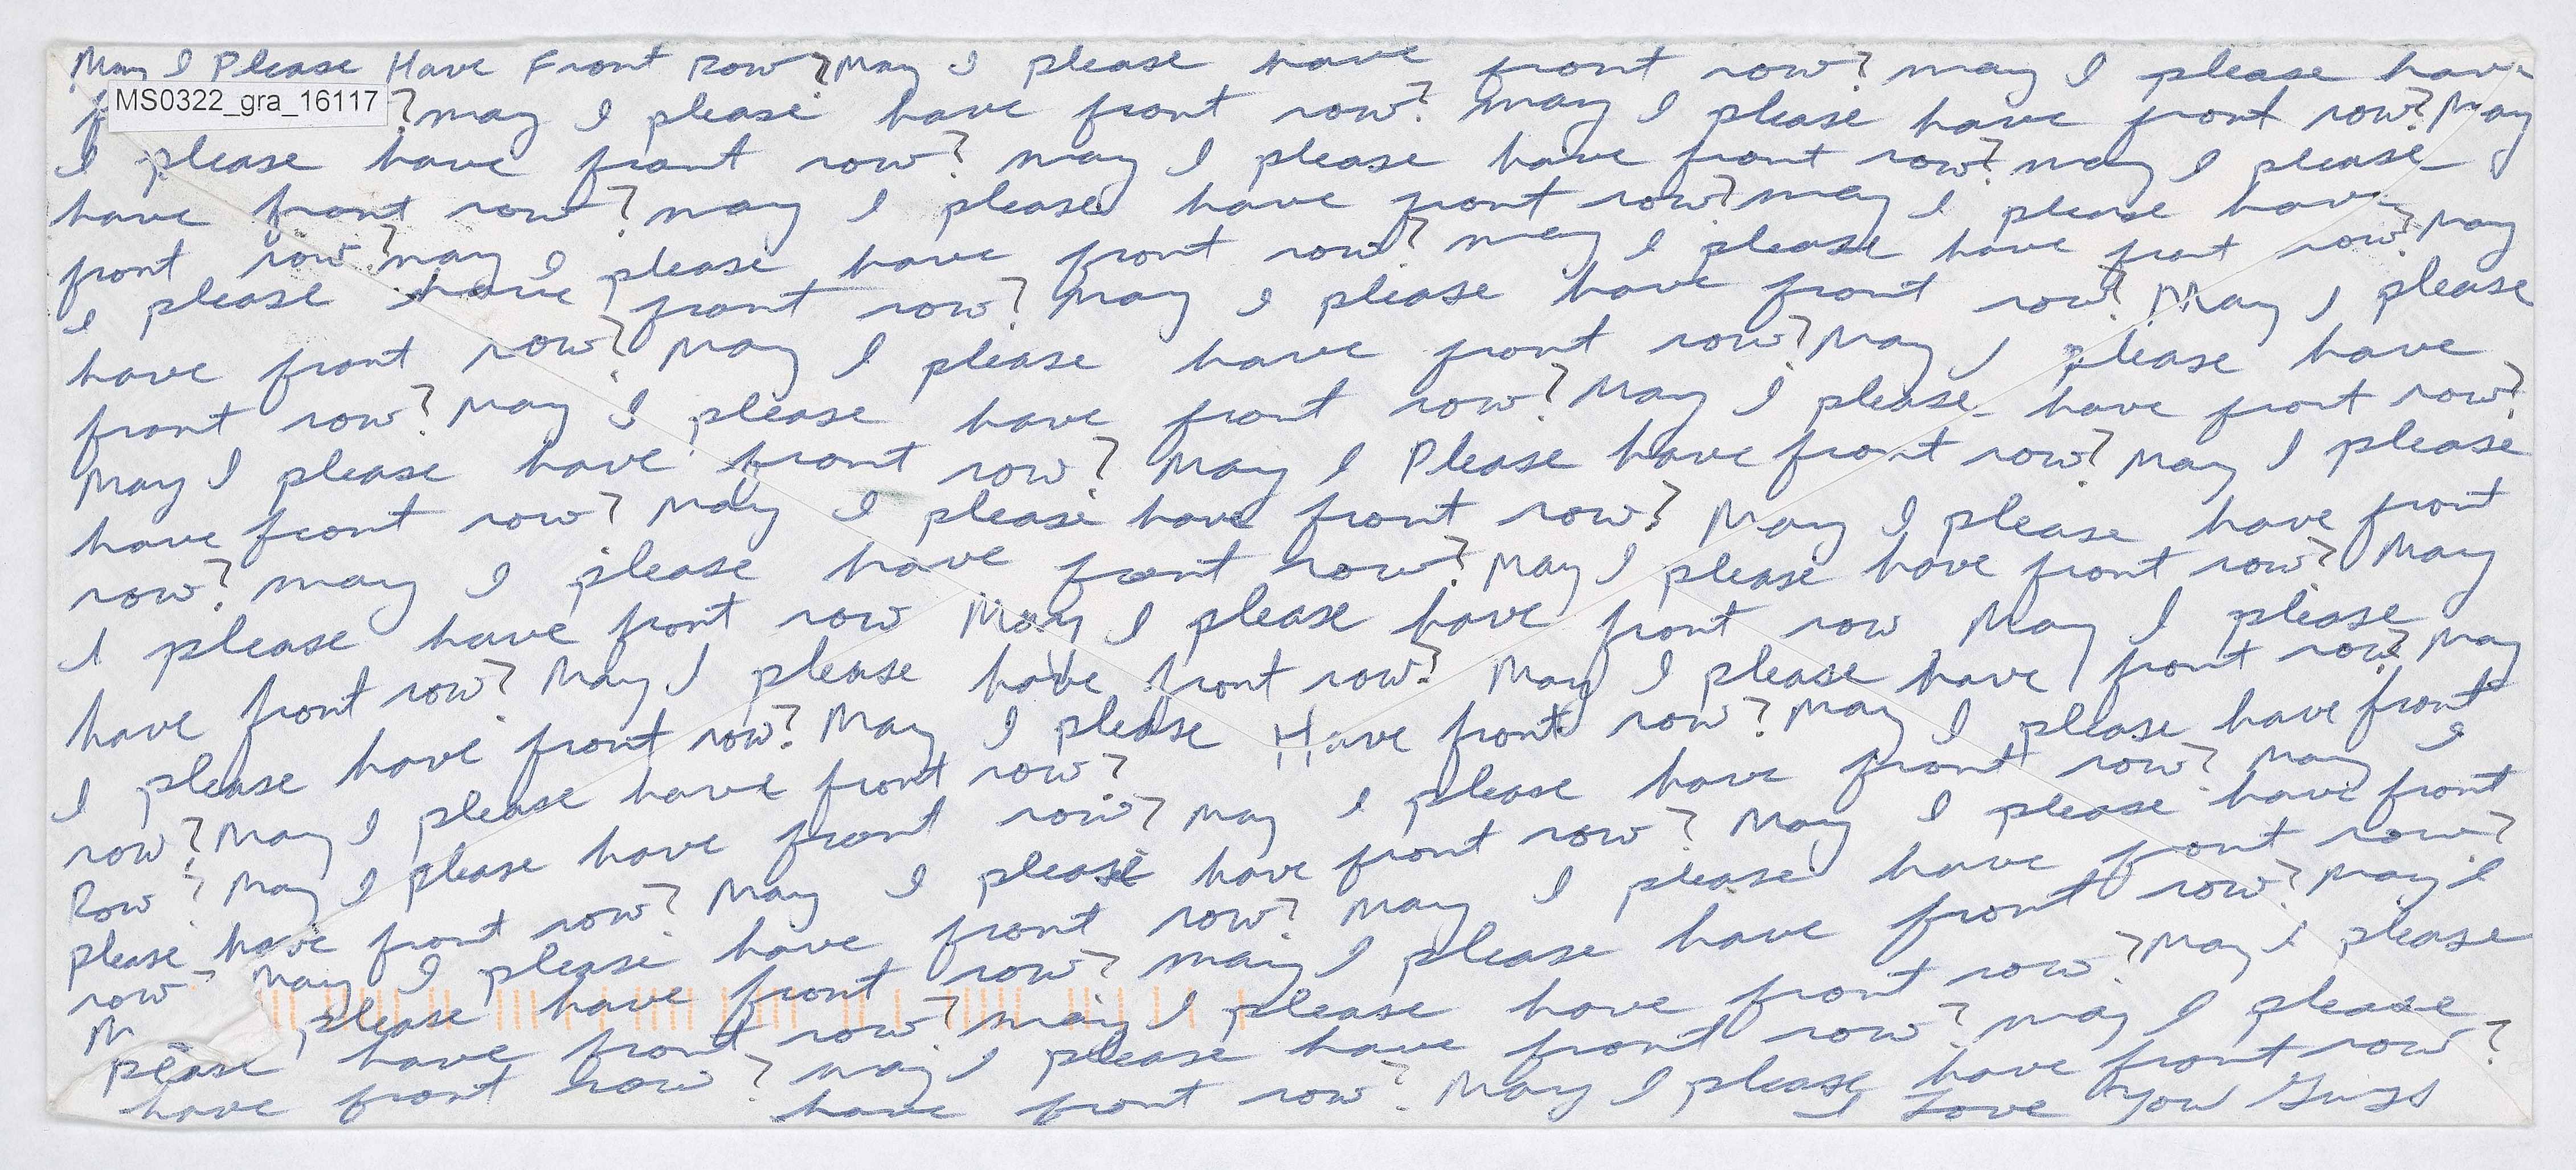 May I Please Have Front Row? May I please have front row? may I please have
MS0322_gra_16117
? may I please have front row? May I please have front row? May
I please have front row? may I please have front row? may I please
have front row? may I please have front row? may I please have
front row? may I please have front row? may I please have front row? May
I please have front row? May I please have front row? May I please
have front row? May I please have front row? May I please have
front row? May I please have front row? May I please have front row?
May I please have front row? May I Please have front row? May I please
have front row? May I please have front row? May I please have front
row? may I please have front row? May I please have front row? May
I please have front row May I please have front row May I please
have front row? May I please have front row? May I please have front row? May
I please have front row? May I please Have front row? May I please have front
row? May I please have front row?
May I please have front row? May I
Row? May I please have front row? May I please have front row? May I please have front
please have front row? May I please have front row? May I please have front row?
row? May I please have front row? May I please have front row? May I
please have front row? may I please have front row? May I please
please have front row? may I please have front row? may I please
have front row? have front row? May I please have front row?
I Love You Guys